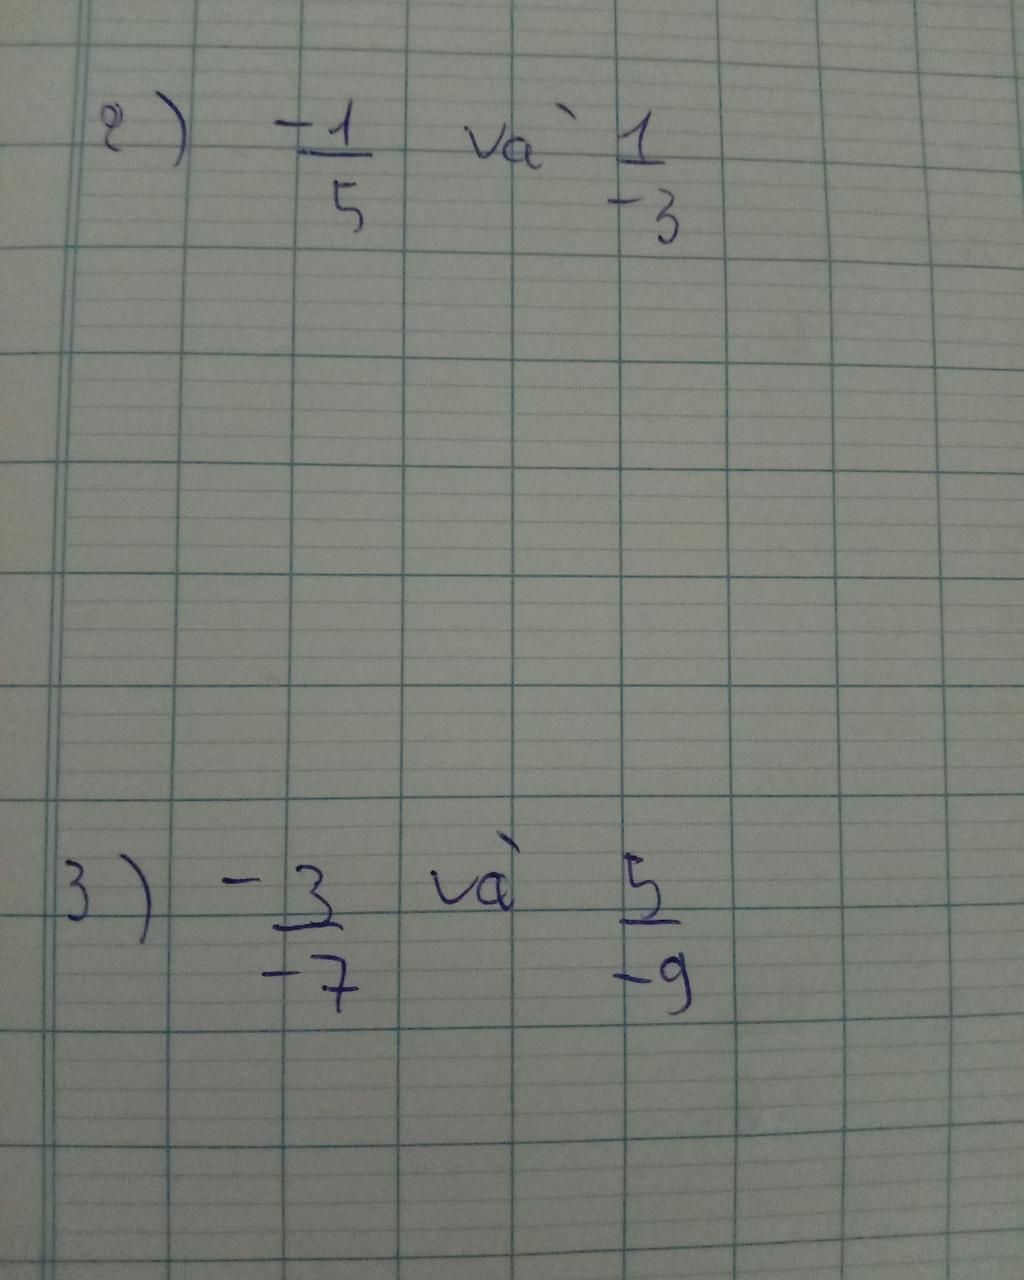 2) -1/5 và 1/-3
3) -3/-7 và 5/-9